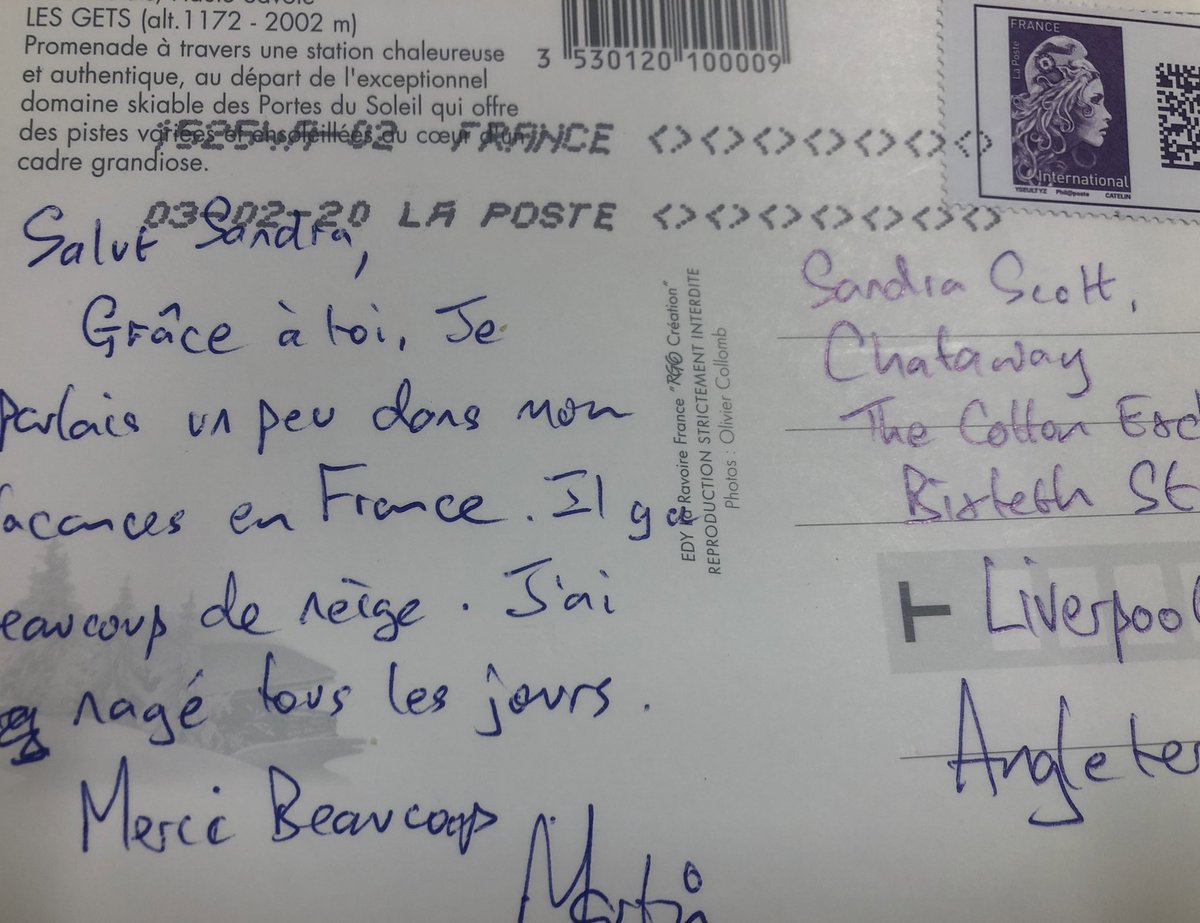 LES GETS (alt.1172 - 2002 m)
Promenade à travers une station chaleureuse
et authentique, au départ de l'exceptionnel
domaine skiable des Portes du Soleil qui offre
des pistes variées et ensoleillées au cœur d'un
cadre grandiose.
3 530120 100009
FRANCE
La Poste
International
YSEULTYZ Phil@poste CATELIN
02 FRANCE
03-02-20 LA POSTE
Salut Sandra,
Grâce à toi, Je
parlais un peu dans mon
vacances en France. Il y a
beaucoup de nèige. J'ai
nagé tous les jours.
Merci Beaucoup
Martin
EDY La Ravoire France "RGO Création"
REPRODUCTION STRICTEMENT INTERDITE
Photos : Olivier Collomb
Sandra Scott,
Chataway
The Cotton Exc
St
Liverpool
Angleter